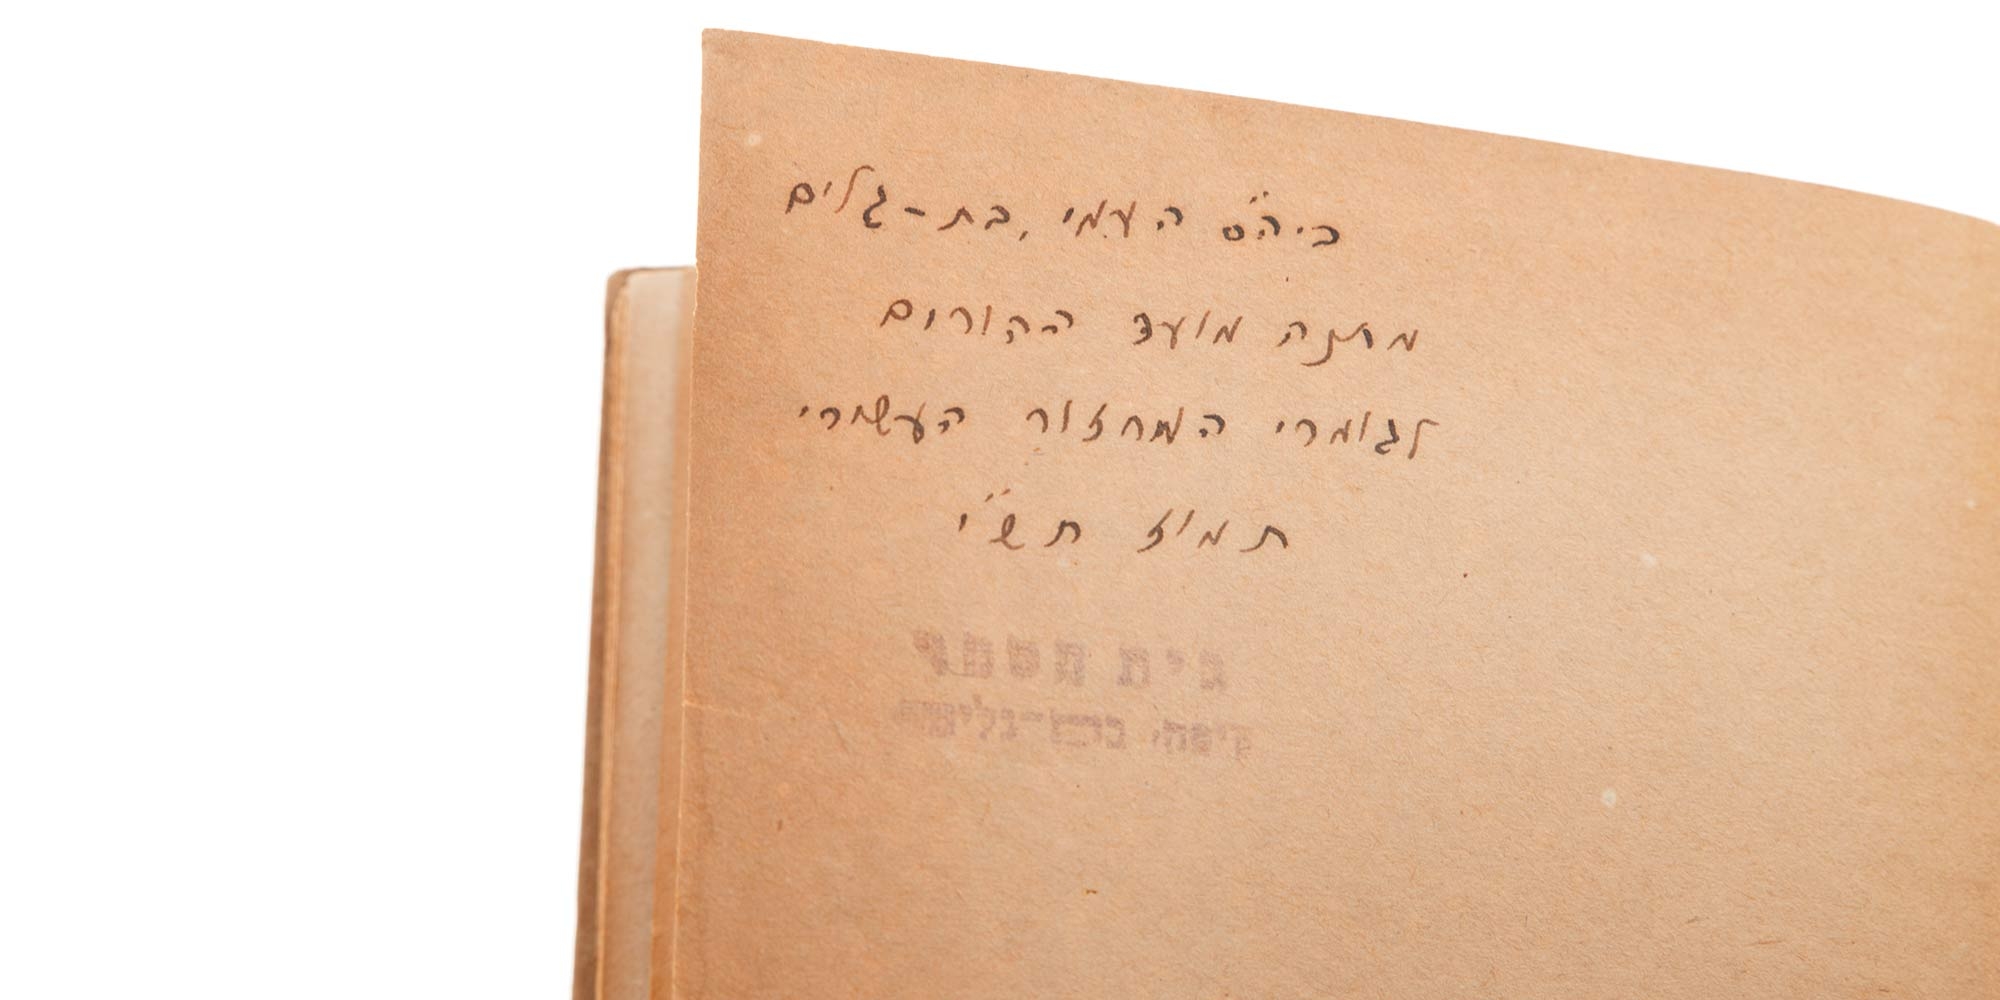 ביה"ס העמי, בת-גלים
מתנה מועד ההורים
לגומרי המחזור העשורי
תמוז תש"י
בית הספר
העממי בת-גלים